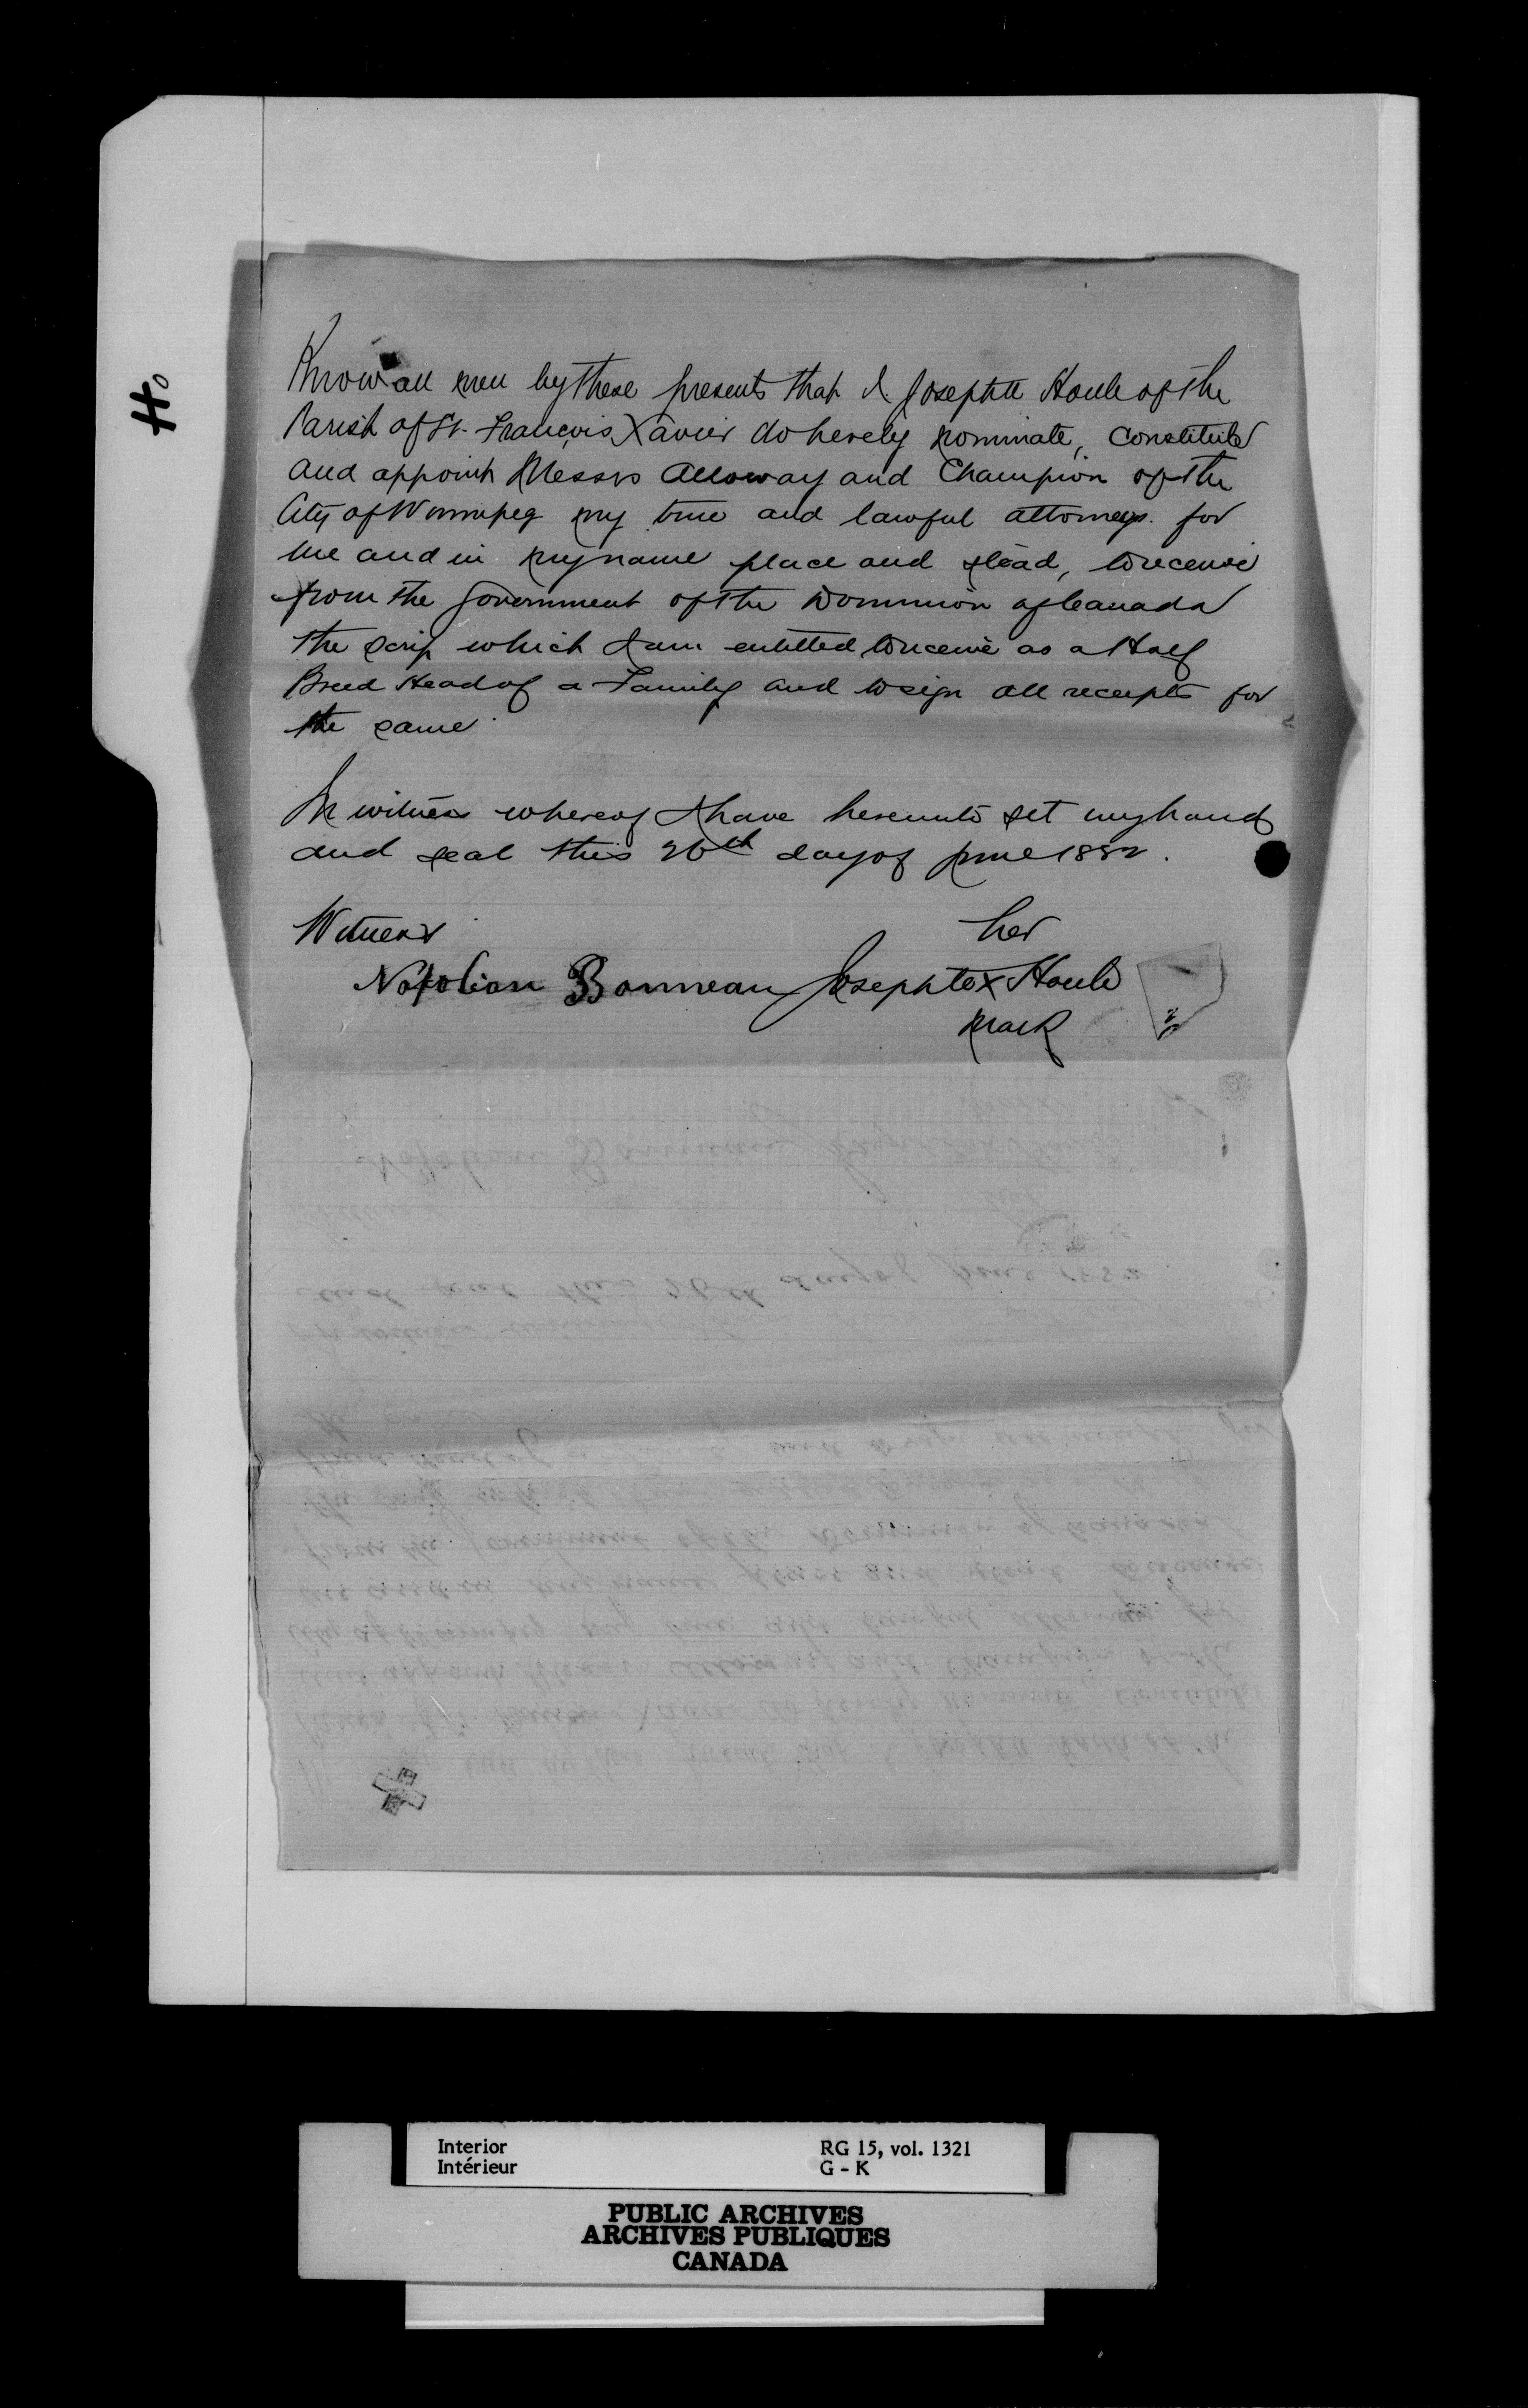 Ho
Know all men by these presents that I Josephte Houle of the
Parish of St. François Xavier do hereby nominate, constitute
and appoint Messrs Alloway and Champion of the
City of Winnipeg my true and lawful attorneys. for
me and in my name place and stead, to receive
from the Government of the Dominion of Canada
the scrip which I am entitled to receive as a Half
Breed Head of a Family and to sign all receipts for
the same.
In witness whereof I have hereunto set my hand
and seal this 26th day of June 1882.
Witness her
Napolion Bonneau Josephte X Houle
mark
Interior RG 15, vol. 1321
Intérieur G - K
PUBLIC ARCHIVES
ARCHIVES PUBLIQUES
CANADA